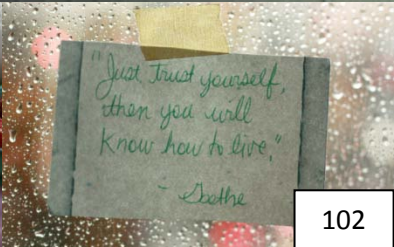 "Just trust yourself,
then you will
know how to live."
- Goethe
102